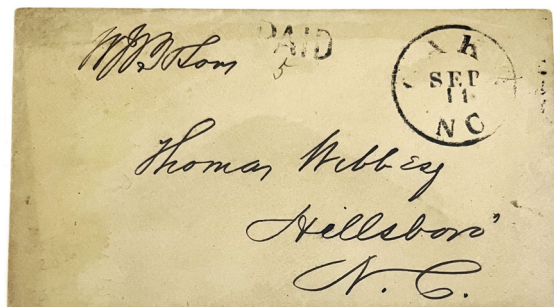 PAID
5
SEP
11
NC
Thomas Webb Esq
Hillsboro'
N. C.